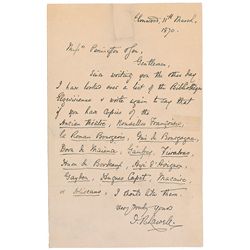 Elmwood, 11th March,
1870.
Messrs Pennington & Son,
Gentlemen,
Since writing you the other day
I have looked over a list of the Bibliothèque
Elzevirienne & write again to say that
if you have copies of the
Ancien Théâtre, Nouvelles Françoises,
Le Roman Bourgeois, Gui de Bourgogne,
Doon de Maience, Gaufrey, Fierabras,
Huon de Bordeaux, Aye d'Avignon,
Gaydon, Hugues Capet, Macaire
& I should like them.
Very truly yours
J. R. Lowell.